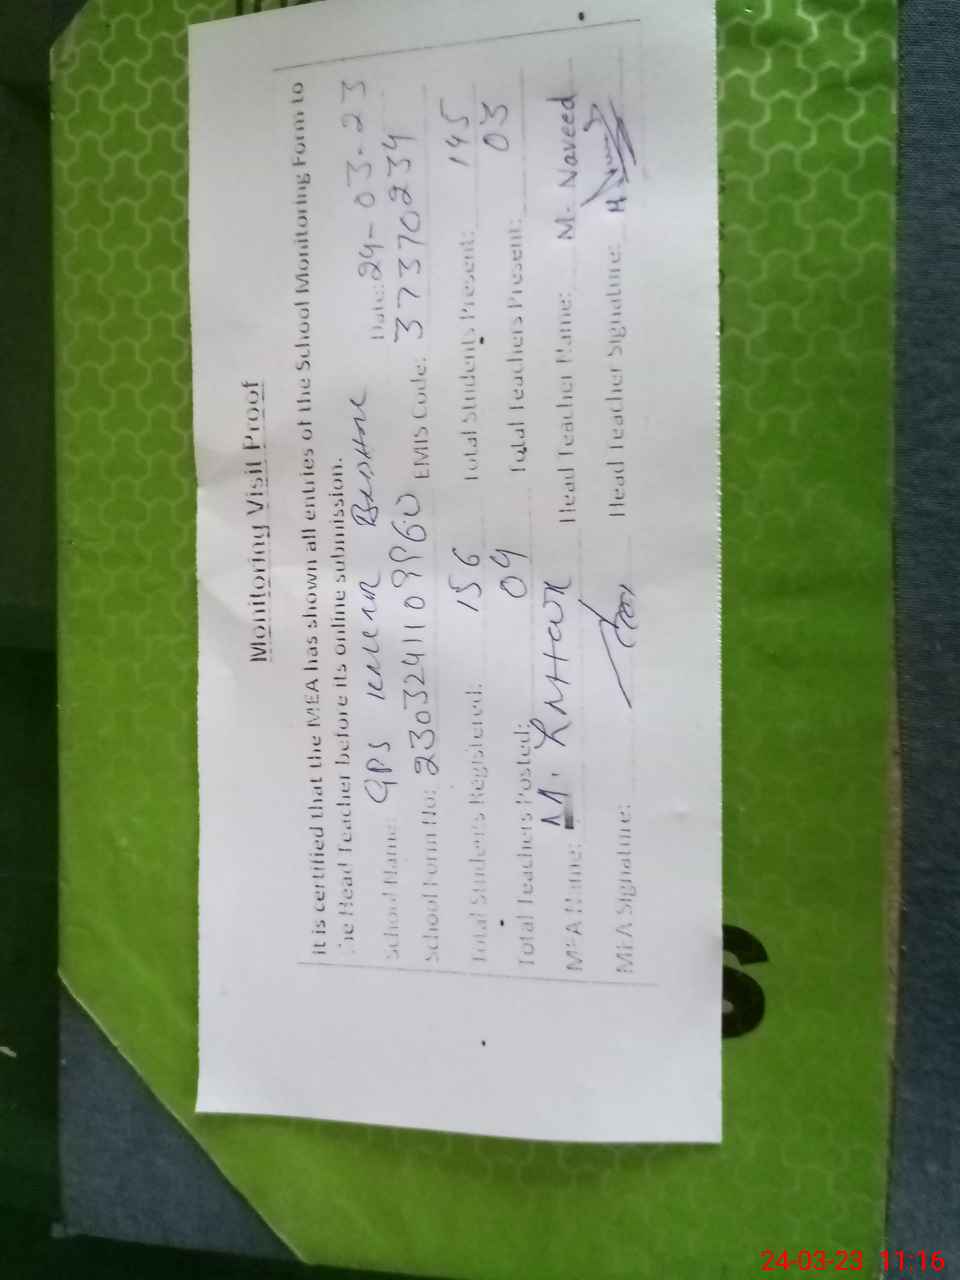 Monitoring Visit Proof
It is certified that the MEA has shown all entries of the School Monitoring Form to
the Head Teacher before its online submission.
School Name: GPS Date: 24-03-23
School Form No: EMIS Code: 37370234
Total Students Registered: 156 Total Students Present: 145
Total Teachers Posted: 04 Total Teachers Present: 03
MEA Name: M. Head Teacher Name: M. Naveed
MEA Signature: Head Teacher Signature:
6
24-03-23 11:16